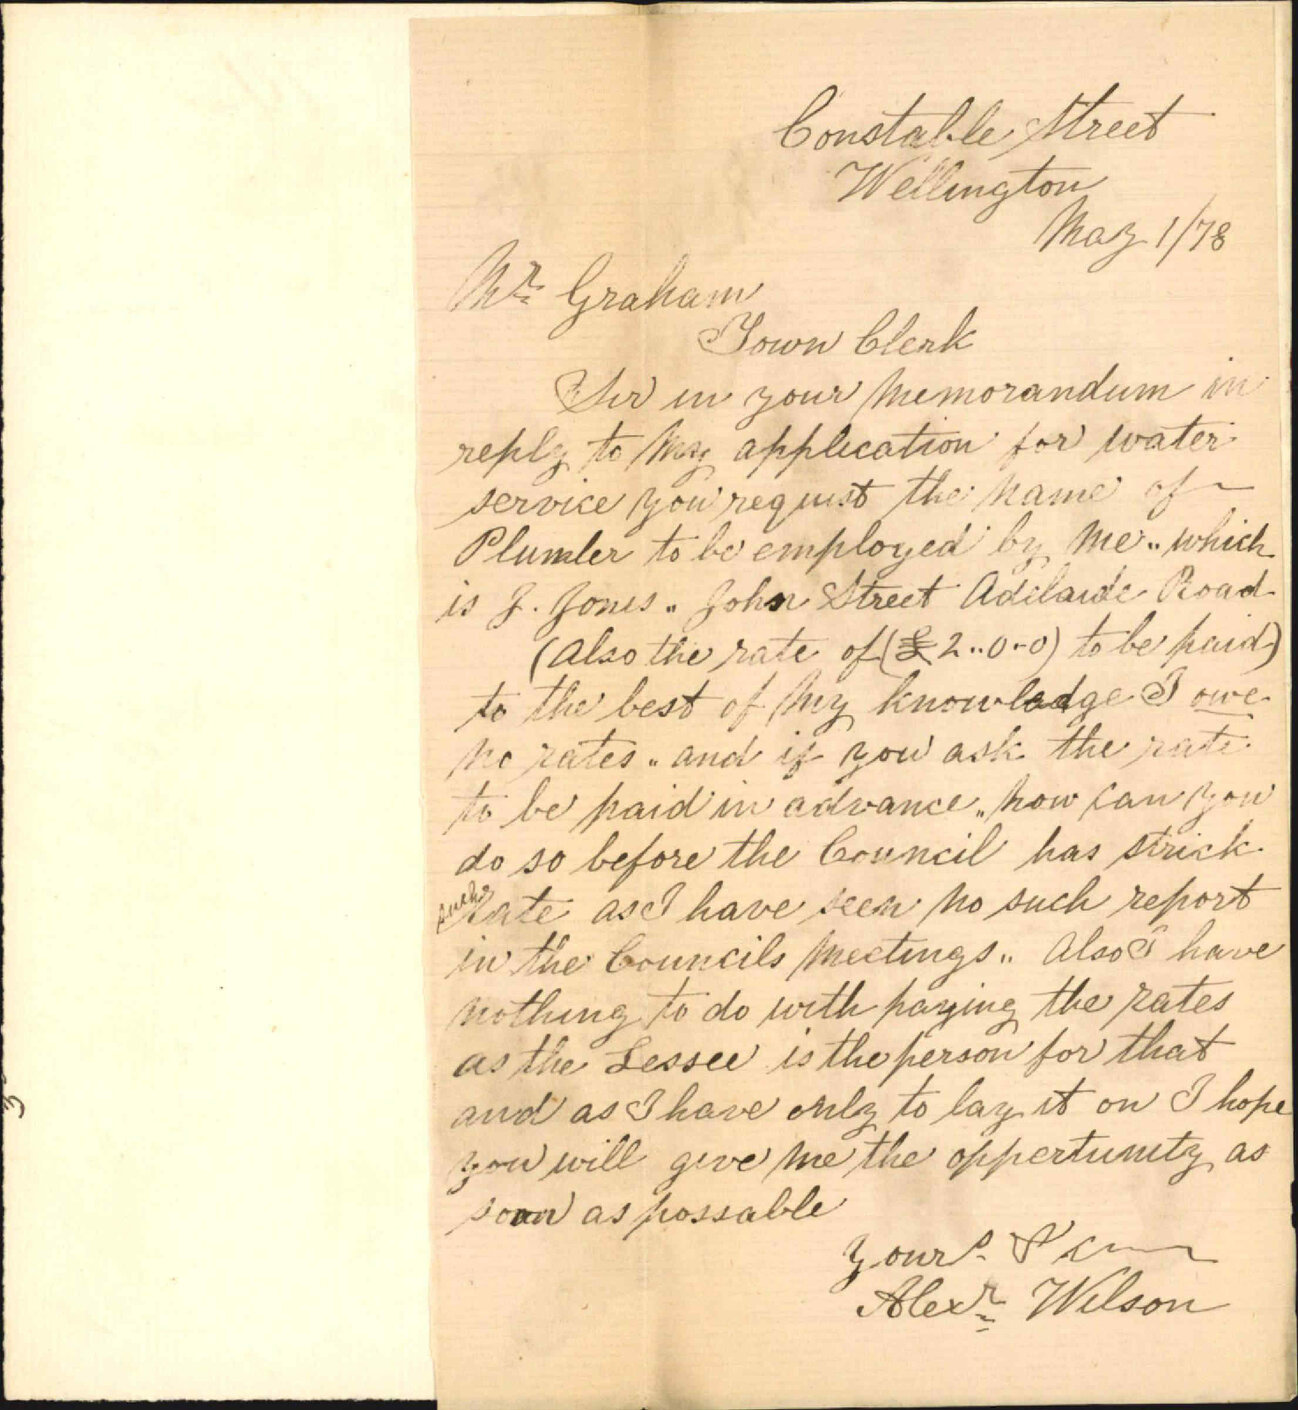 Constable Street
Wellington
May 1/78
Mr Graham
Town Clerk
Sir in your Memorandum in
reply to My application for water
service you requist the Name of
Plumber to be employed by Me.. which
is J. Jones.. John Street Adelaide Road
(Also the rate of (£2..0-0) to be paid)
to the best of My knowladge I owe
No rates.. and if you ask the rate
to be paid in advance.. how can you
do so before the Council has strick
such rate as I have seen No such report
in the Councils Meetings.. Also I have
Nothing to do with paying the rates
as the Lessee is the person for that
and as I have only to lay it on I hope
you will give Me the oppertunity as
soon as possable
Yours
Alexr Wilson